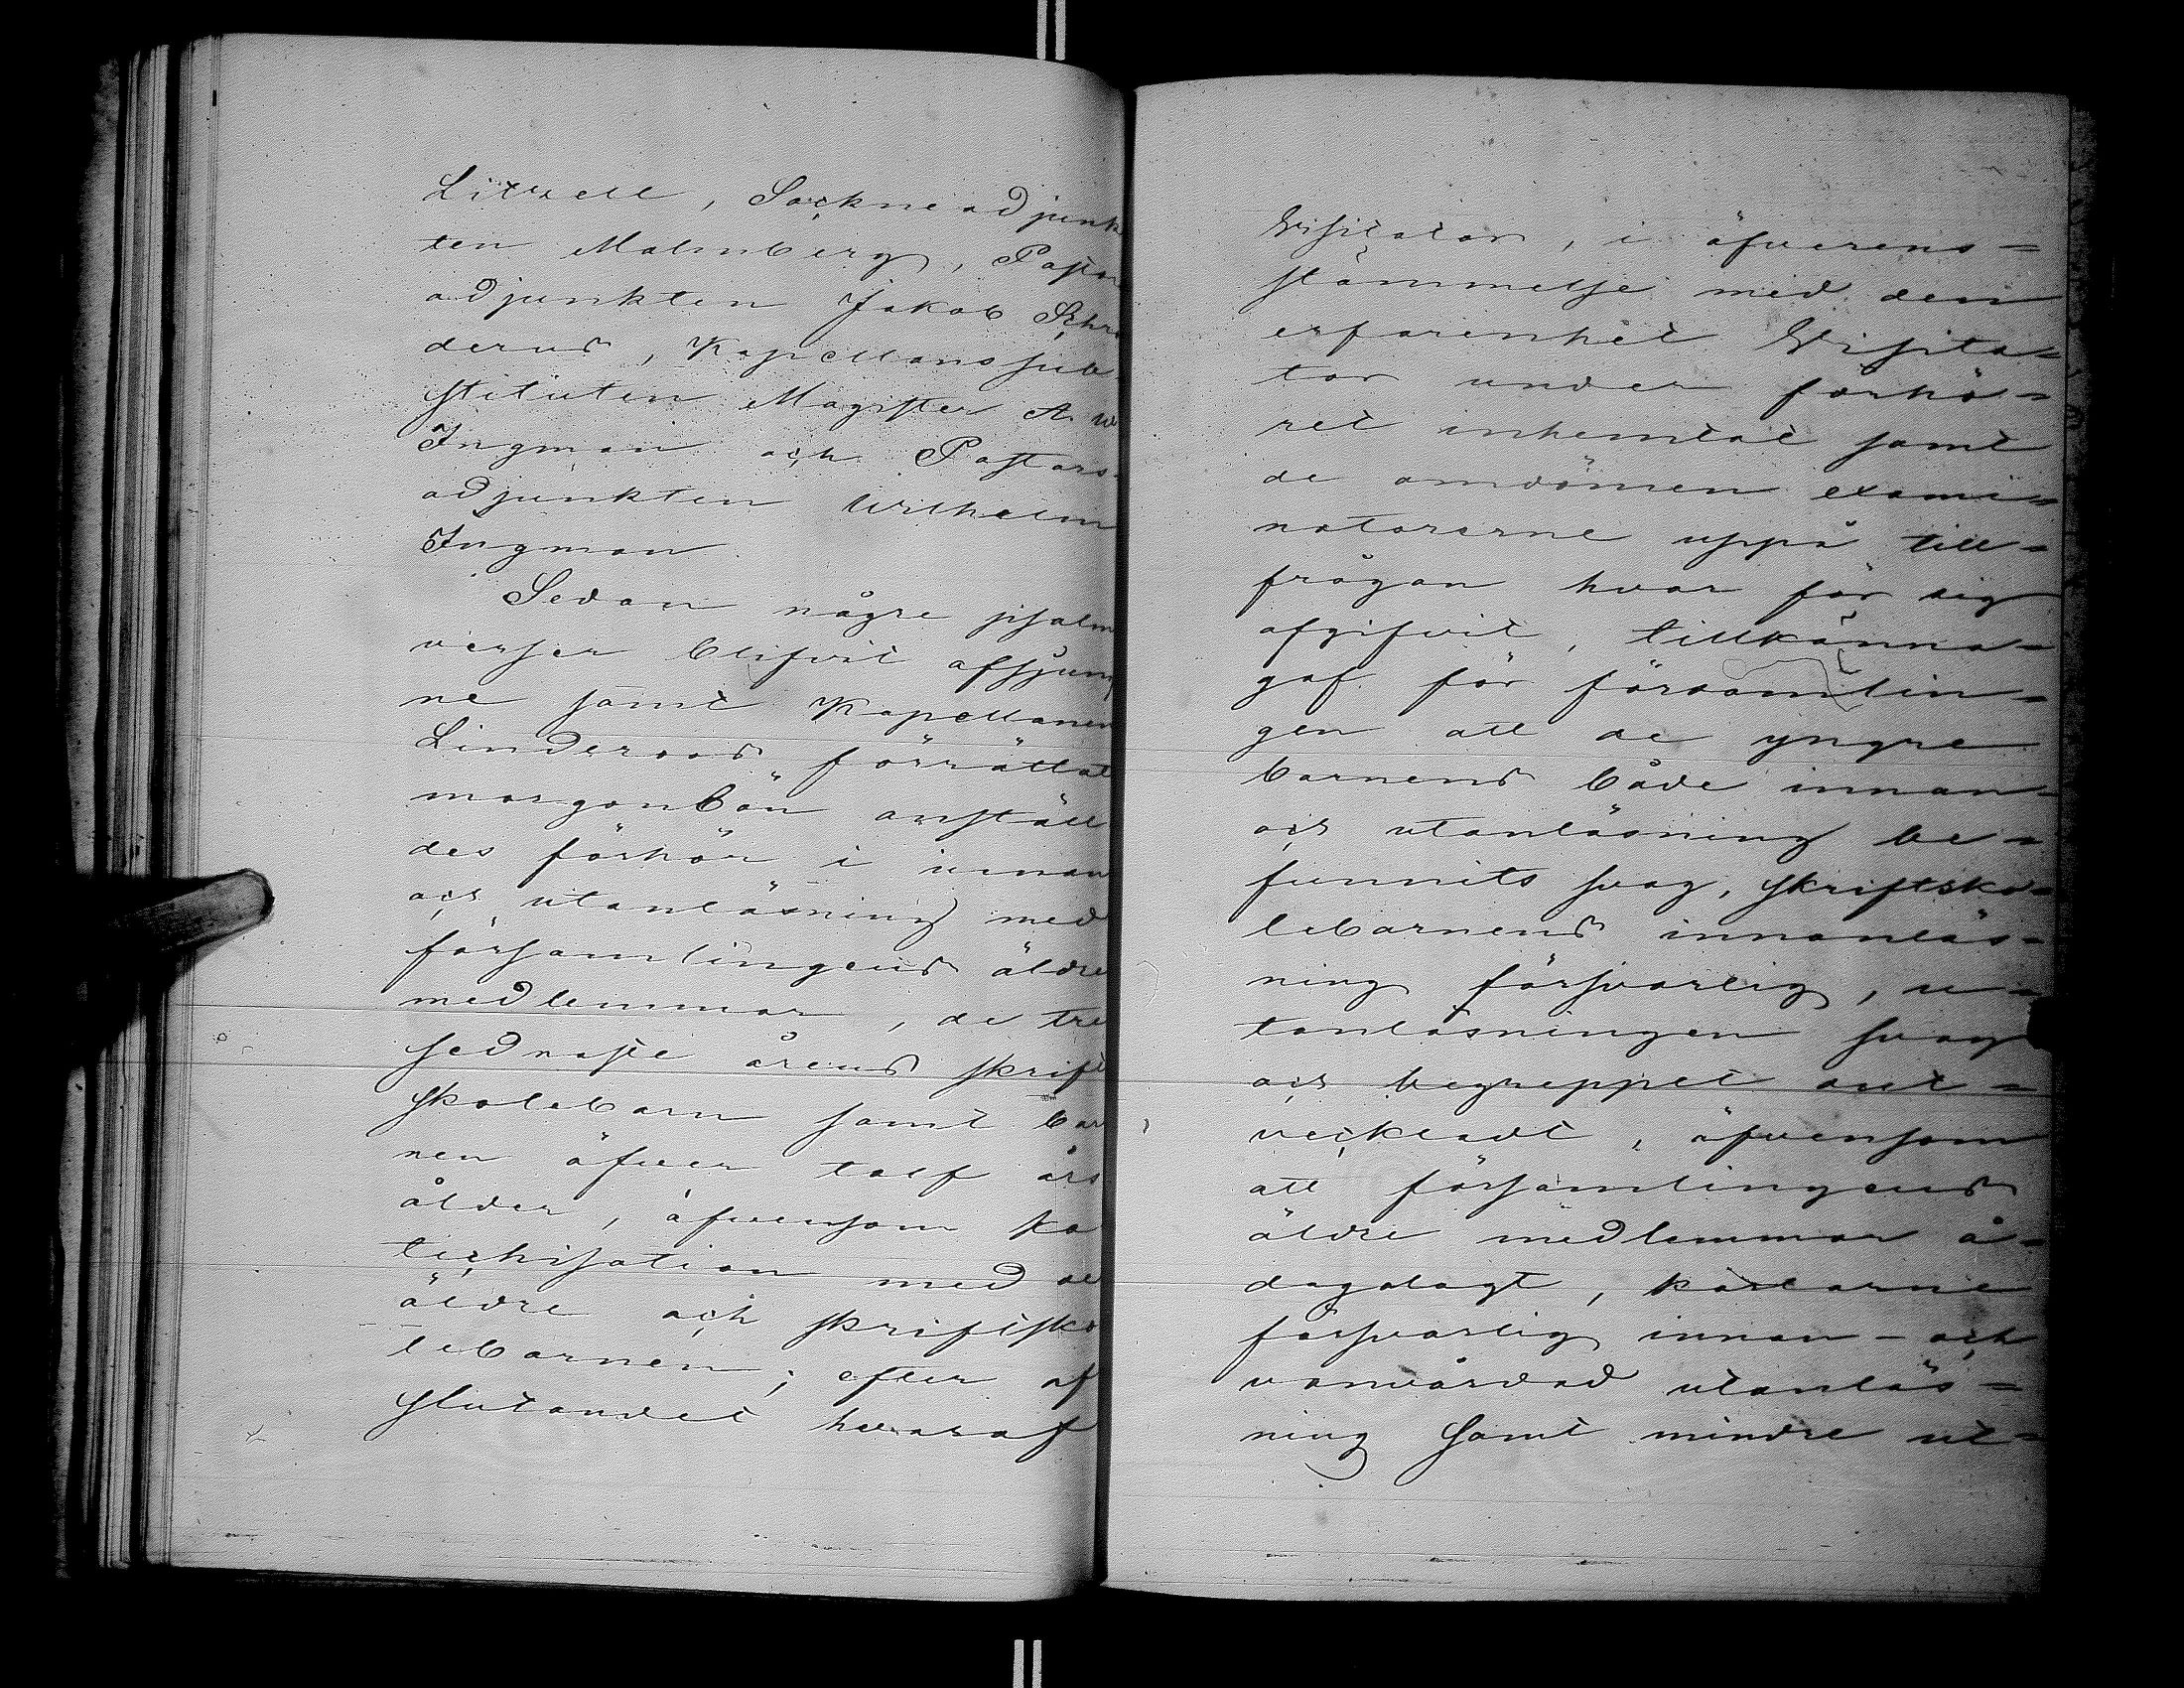 Litzell, Sockneadjunk
ten Malmberg, Pastor
adjunkten Jakob Schro
derus, Kapellanssub
stituten Magister A W
Ingman och Pastors-
adjunkten Wilhelm
Ingman.
Sedan någre psalm
verser blifvit afsjung
ne samt Kapellanen
Linderoos förrättat
morgonbön anställ
des förhör i innan
och utanläsning med
församlingens äldre
medlemmar, de tre
sednaste årens skrift
skolebarn samt bar
nen öfver tolf års
ålder, äfvensom ka
techisation med de
äldre och skriftsko
lebarnen; efter af
slutandet hvaraf
Visitator, i öfverens-
stämmelse med den
erfarenhet Visita-
tor under förhö-
ret inhemtat samt
de omdömen exami-
natorerne uppå till-
frågan hvar för sig
afgifvit, tillkänna-
gaf för församlin-
gen att de yngre
barnens både innan-
och utanläsning be-
funnits svag, skriftsko-
lebarnens innanläs-
ning försvarlig, u-
tanläsningen svag
och begreppet out-
veckladt, äfvensom
att församlingens
äldre medlemmar å-
dagalagt, karlarne
försvarlig innan- och
vanvårdad utanläs-
ning samt mindre ut-